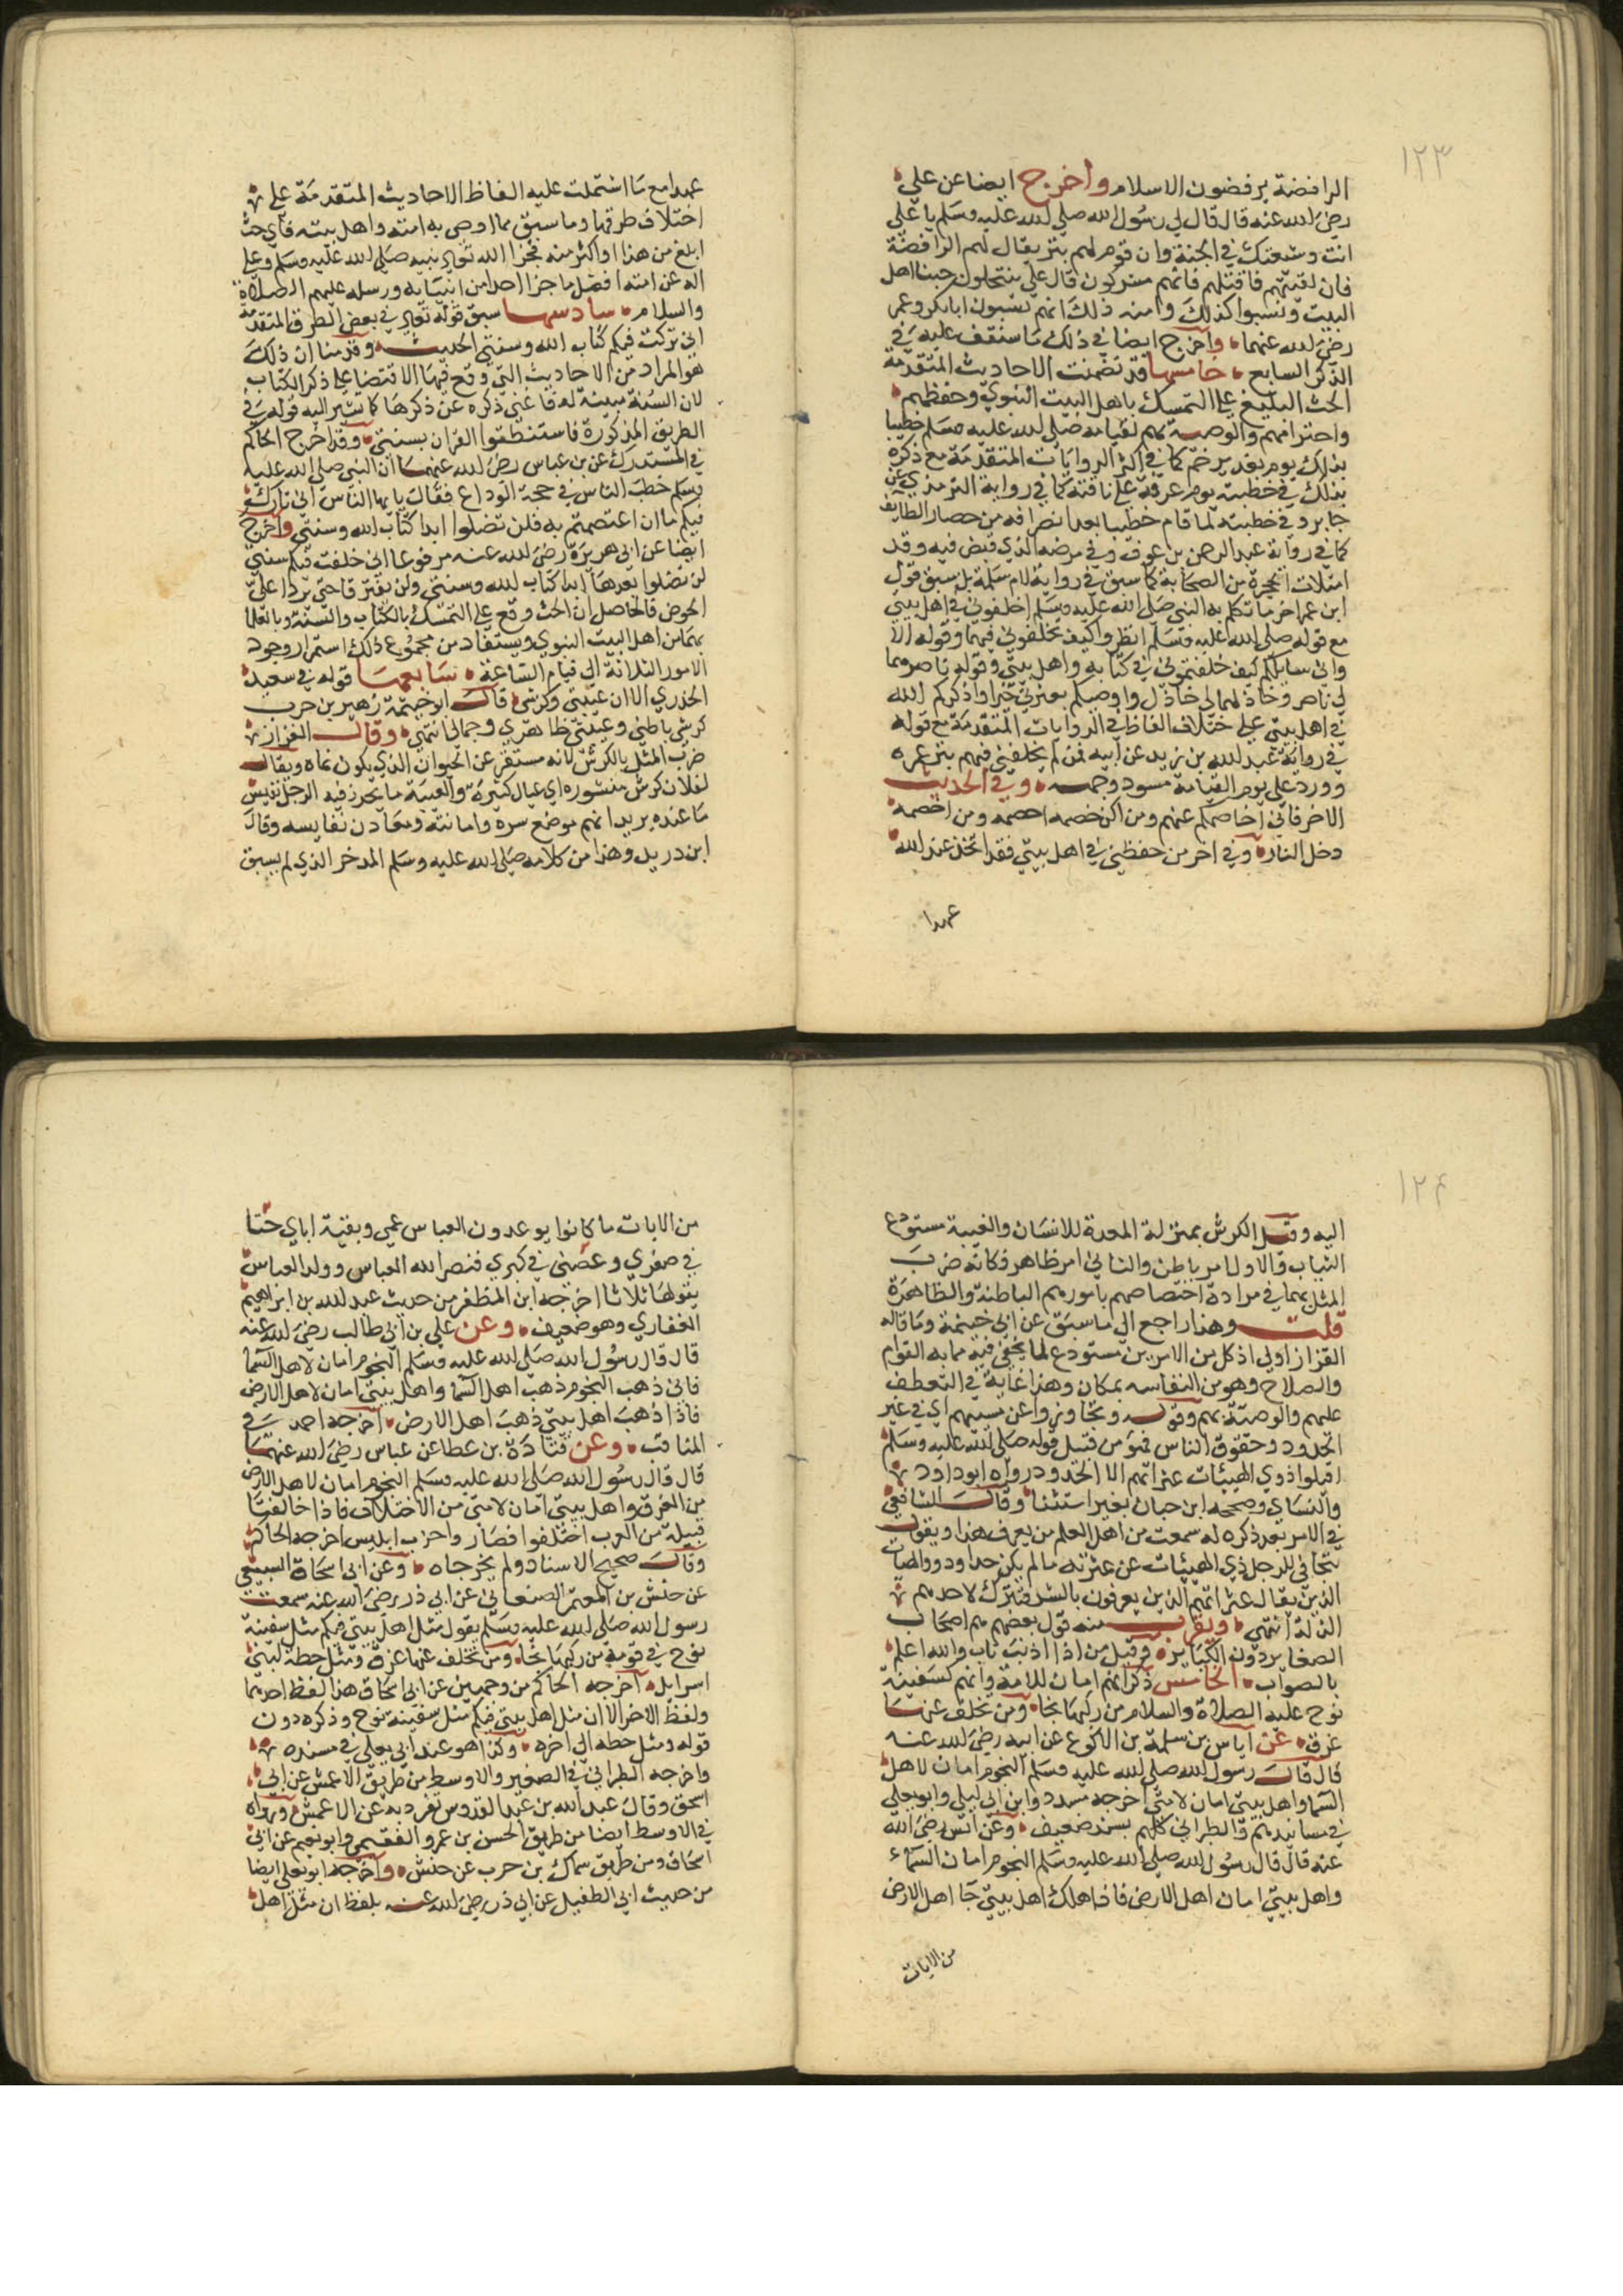 ١٢٣
الرافضة يرفضون الاسلام واخرج ايضا عن علي
رضي الله عنه قال قال لي رسول الله صلي الله عليه وسلم يا علي
انت وشيعتك في الجنة وان قوم لهم نبز يقال لهم الرافضة
فان لقيتهم فاقتلهم فانهم مشركون قال علي ينتحلون حبنا اهل
البيت وليسوا كذلك وامنه ذلك انهم يسبون ابا بكر وعمر
رضي الله عنهما واخرج ايضا في ذلك ما ستقف عليه في
الذكر السابع خامسها قد تضمنت الاحاديث المتقدمة
الحث البليغ علي التمسك باهل البيت النبوي وحفظهم
واحترامهم والوصية بهم لقيامه صلي الله عليه وسلم خطيبا
بذلك يوم غدير خم كما في اكثر الروايات المتقدمة مع ذكره
بذلك في خطبته يوم عرفة علي ناقته كما في رواية الترمذي عن
جابر وفي خطبته لما قام خطيبا بعد انصرافه من حصار الطايف
كما في رواية عبد الرحمن بن عوف وفي مرضه الذي قبض فيه وقد
امتلات الحجرة من الصحابة كما سبق في رواية لام سلمة بل سبق قول
ابن عمر اخر ما تكلم به النبي صلي الله عليه وسلم اخلفوني في اهل بيتي
مع قوله صلي الله عليه وسلم انظروا كيف تخلفوني فيهما وقوله الا
واني سايلكم كيف خلفتموني في كتابه واهل بيتي وقوله ناصرهما
لي ناصر وخاذلهما لي خاذل واوصيكم بعترتي خيرا واذكركم الله
في اهل بيتي علي اختلاف الفاظ في الروايات المتقدمة مع قوله
في رواية عبد الله بن زيد عن ابيه فمن لم يخلفني فيهم بتر عمره
وورد علي يوم القيامة مسود وجهه وفي الحديث
الاخر فاني اخاصمكم عنهم ومن اكن خصمه اخصمه ومن اخصمه
دخل النار وفي اخر من حفظني في اهل بيتي فقد اتخذ عند الله
عهدا
عهدا مع ما اشتملت عليه الفاظ الاحاديث المتقدمة علي
اختلاف طرقها وما سبق مما اوصي به امته واهل بيته فاي حث
ابلغ من هذا او اكثر منه فجزا الله تعالي نبيه صلي الله عليه وسلم وعلي
اله عن امته افضل ما جزا احدا من انبيايه ورسله عليهم الصلاة
والسلام سادسها سبق قوله تعالي في بعض الطرق المتقدمة
اني تركت فيكم كتاب الله وسنتي الحديث وقدمنا ان ذلك
هو المراد من الاحاديث التي وقع فيها الاقتضا علي ذكر الكتاب
لان السنة مبينة له فاغني ذكره عن ذكرها كما تشير اليه قوله في
الطريق المذكورة فاستنطقوا القران بسنتي وقد اخرج الحاكم
في المستدرك عن بن عباس رضي الله عنهما ان النبي صلي الله عليه
وسلم خطب الناس في حجة الوداع فقال يا يها الناس اني تارك
فيكم ما ان اعتصمتم به فلن تضلوا ابدا كتاب الله وسنتي واخرج
ايضا عن ابي هريرة رضي الله عنه مرفوعا اني خلفت فيكم سنتي
لن تضلوا بعدها ابدا كتاب الله وسنتي ولن يفترقا حتي يردا علي
الحوض فالحاصل ان الحث وقع علي التمسك بالكتاب والسنة وبالعلما
بهما من اهل البيت النبوي ويستفاد من مجموع ذلك استمرار وجود
الامور الثلاثة الي قيام الساعة سابعها قوله في سعيد
الخدري الا ان عيبتي وكرشي قال ابو خيثمة زهير بن حرب
كرشي باطني وعيبتي ظاهري وجمالي انتهي وقال القزاز
ضرب المثل بالكرش لانه مستقر عن الحيوان الذي يكون نماه ويقال
لفلان كرش منثوره اي عيال كثيرة والعيبة ما يحرز فيه الرجل نفيس
ما عنده يريد انهم موضع سره وامانته ومعادن نفايسه وقال
ابن دريد وهذا من كلامه صلي الله عليه وسلم المدخر الذي لم يسبق
١٢٤
اليه وقيل الكرش بمنزلة المعدة للانسان والعيبة مستودع
الثياب فالاول امر باطن والثاني امر ظاهر فكانه ضرب
المثل بهما في مرادة اختصاصهم بامورهم الباطنة والظاهرة
قلت وهذا راجع الي ما سبق عن ابي خيثمة وما قاله
القزاز اولي اذ كل من الامرين مستودع لما يخفي فيه مما به القوام
والصلاح وهو من النفاسه بمكان وهذا غاية في التعطف
عليهم والوصية بهم وقوله وتجاوزوا عن مسيهم اي في غير
الحدود وحقوق الناس فهو من قبيل قوله صلي الله عليه وسلم
اقيلوا ذوي الهيئات عثراتهم الا الحدود رواه ابو داود
والنساي وصححه ابن حبان بغير استثنا وقال الشافعي
في الامر بعد ذكره له سمعت من اهل العلم من يعرف هذا ويقول
يتجافي للرجل ذي الهيئات عن عثرته ما لم يكن حدا وذوو الهيات
الذين يقال عثراتهم الذين يعرفون بالشر فيترك لاحدهم
الزلة انتهي ويقرب منه قول بعضهم هم اصحاب
الصغاير دون الكباير وقيل من اذا اذنب تاب والله اعلم
بالصواب الخامس ذكر انهم امان للامة وانهم كسفينة
نوح عليه الصلاة والسلام من ركبها نجا ومن تخلف عنها
غرق عن اياس بن سلمة بن الاكوع عن ابيه رضي الله عنه
قال قال رسول الله صلي الله عليه وسلم النجوم امان لاهل
السما واهل بيتي امان لامتي اخرجه مسدد وابن ابي ليلي وابو يعلي
في مسانيدهم والطبراني كلهم بسند ضعيف وعن انس رضي الله
عنه قال قال رسول الله صلي الله عليه وسلم النجوم امان السماء
واهل بيتي امان اهل الارض فاذا هلك اهل بيتي جا اهل الارض
من الايات
من الايات ما كانوا يوعدون العباس عمي وبقية اباي حتا
في صغري وعضني في كبري فنصر الله العباس وولد العباس
يقولها ثلاثا اخرجه ابن المظفر من حديث عبد الله بن ابراهيم
الغفاري وهو ضعيف وعن علي بن ابي طالب رضي الله عنه
قال قال رسول الله صلي الله عليه وسلم النجوم امان لاهل السما
فاني ذهب النجوم ذهب اهل السما واهل بيتي امان لاهل الارض
فاذا ذهب اهل بيتي ذهب اهل الارض اخرجه احمد في
المناقب وعن قتادة بن عطا عن عباس رضي الله عنهما
قال قال رسول الله صلي الله عليه وسلم النجوم امان لاهل الارض
من الغرق واهل بيتي امان لامتي من الاختلاف فاذا خالفتها
قبيلة من العرب اختلفوا فصار واحزب ابليس اخرجه الحاكم
وقال صحيح الاسناد ولم يخرجاه وعن ابي اسحاق السبيعي
عن حنش بن المعتمر الصنعاني عن ابي ذر رضي الله عنه سمعت
رسول الله صلي الله عليه وسلم يقول مثل اهل بيتي فيكم مثل سفينة
نوح في قومه من ركبها نجا ومن تخلف عنها غرق ومثل حطة لبني
اسرايل اخرجه الحاكم من وجهين عن ابي اسحاق هذا لفظ احدهما
ولفظ الاخر الا ان مثل اهل بيتي فيكم مثل سفينة نوح وذكره دون
قوله ومثل حطه الي اخره وكذا هو عند ابي يعلي في مسنده
واخرجه الطبراني في الصغير والاوسط من طريق الاعمش عن ابي
اسحق وقال عبد الله بن عبد القدوس تفرد به عن الاعمش ورواه
في الاوسط ايضا من طريق الحسن بن عمرو الفقيمي وابو نعيم عن ابي
اسحاق ومن طريق سماك بن حرب عن حنش واخرجه ابو يعلي ايضا
من حديث ابي الطفيل عن ابي ذر رضي الله عنه بلفظ ان مثل اهل